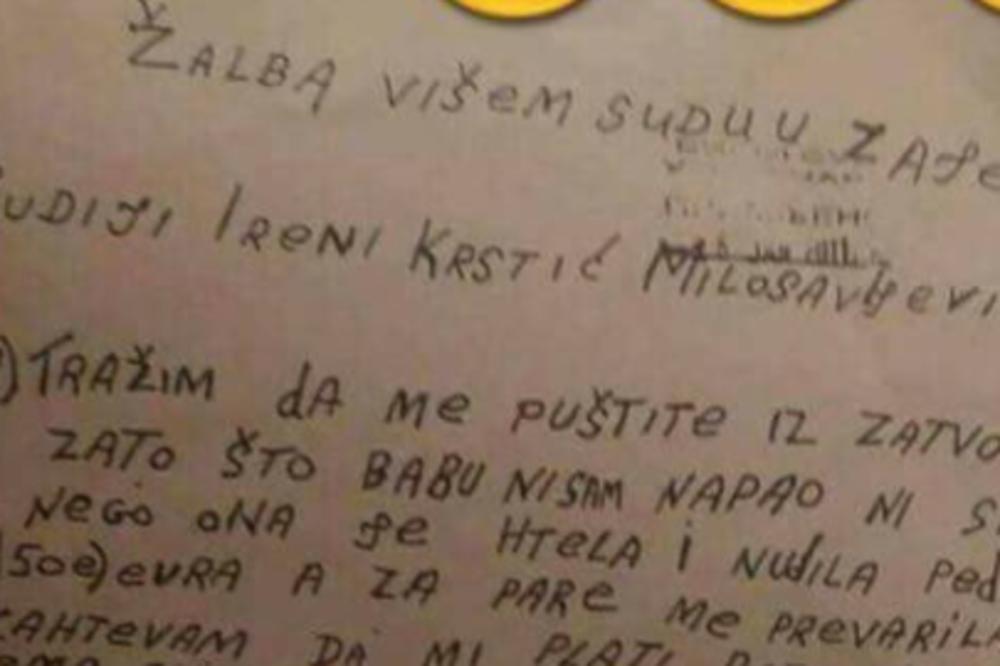 ŽALBA VIŠEM SUDU U ZAJE
SUDIJI IRENI KRSTIĆ MILOSAVLJEVI
) TRAŽIM DA ME PUŠTITE IZ ZATVO
ZATO ŠTO BABU NISAM NAPAO NI S
NEGO ONA JE HTELA I NUDILA PED
(50e) EVRA A ZA PARE ME PREVARILA
ZAHTEVAM DA MI PLATI